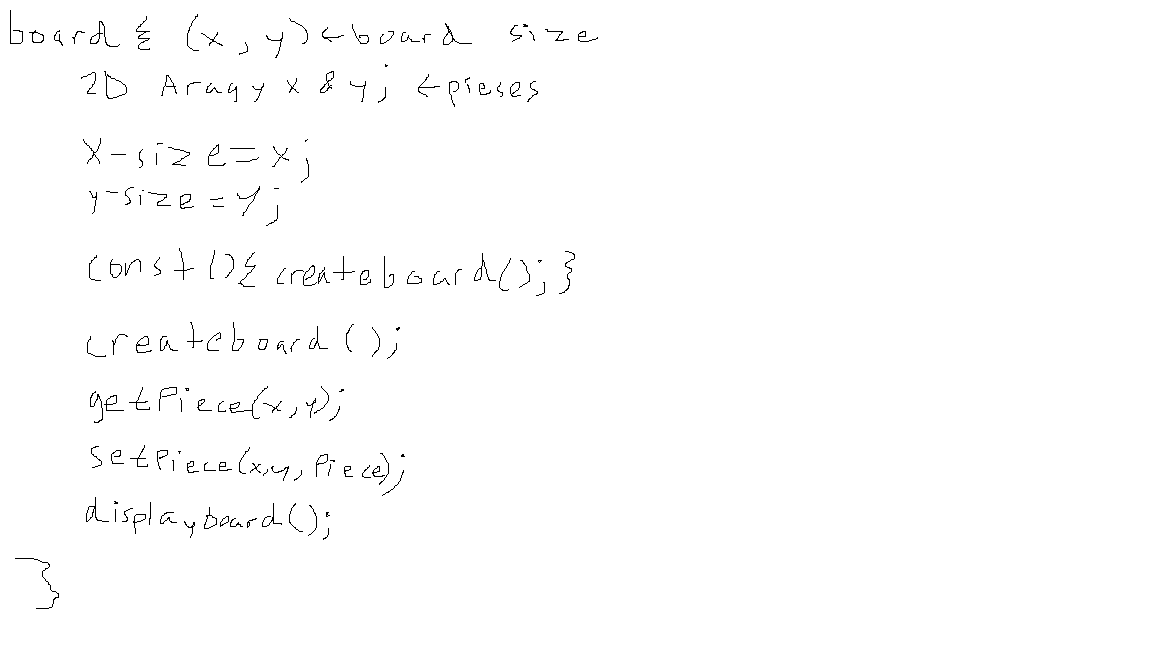 board { (x, y) ← board size
2D Array x & y; ← pieses
x-size = x;
y-size = y;
const(){ createboard(); }
createboard();
getPiece(x,y);
setPiece(x,y, Piece);
displayboard();
}